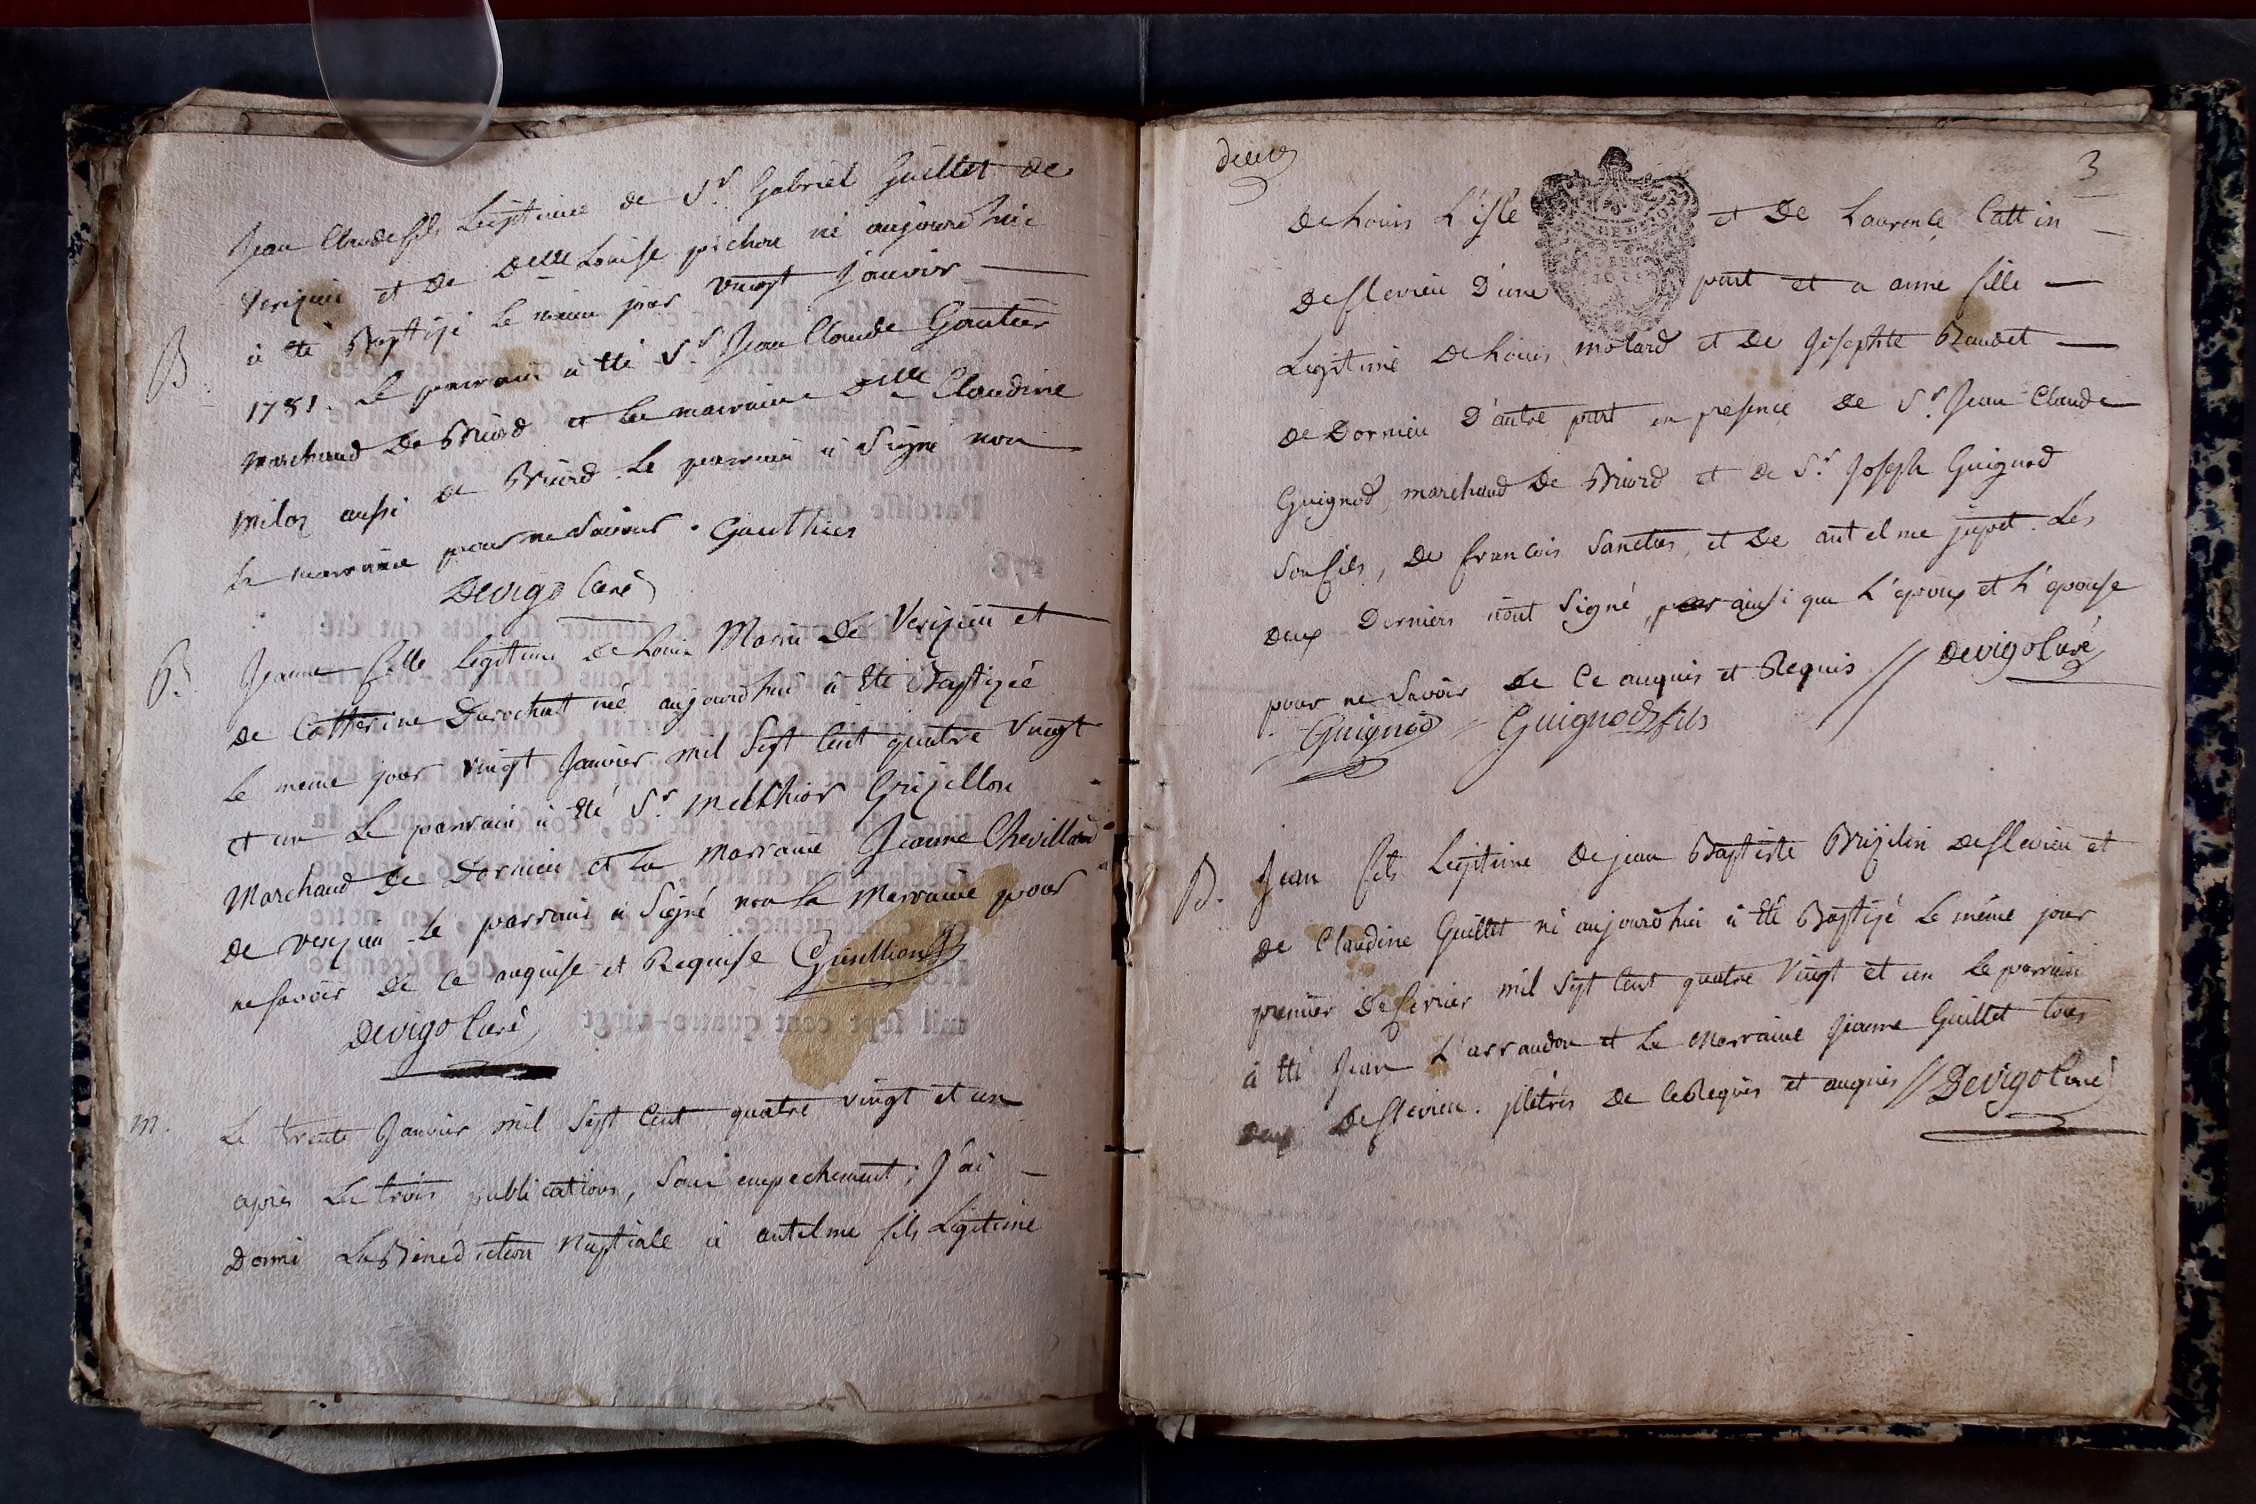 Jean Claude fils Legitime de Sr. Gabriel Guillet de
Verizieu et de Delle Louise pichon né aujourd'hui
B
à été Baptizé le même jour vingt janvier
1781. Le parrain a été Sr. Jean Claude Gautier
marchand de Briord et la marraine Delle Claudine
miloz aussi de Briord le parrain a Signé non
la marraine pour ne Savoir. Gauthier
Devigo Curé
B. Jeanne fille legitime de Louis Marin de Verizieu et
de Catherine Durochat née aujourd'hui à été Baptizée
le meme jour vingt Janvier mil Sept Cent quatre Vingt
et un Le parrain à été Sr. Melchior Grizillon
Marchand de Dornieu et la Marraine Jeanne Chevilland
de verizieu le parrain a Signé non la Marraine pour
ne savoir de ce enquise et Requise
Devigo Curé
m. Le trente Janvier mil Sept Cent quatre vingt et un
après Le trois publications, Sans empechement, J'ai
Donné La Bénédiction Nuptiale à antelme fils Légitime
deux
3
De Louis L'isle et De Laurence Cattin
De flevieu D'une part et a anne fille
Legitime De Louis molard et De Josephte Baudet
De Dornieu D'autre part en presence De Sr. Jean Claude
Guignod, marchand De Briord et de Sr. Joseph Guignod
Son fils, De francois Sanctus, et De antelme jupet. Les
Deux Derniers n'ont Signé, ainsi que L'époux et L'épouse
pour ne Savoir De Ce enquis et Requis // Devigo Curé
Guignod Guignod fils
B. Jean fils Legitime De jean Baptiste Brizelin De flevieu et
De Claudine Guillet né aujourd'hui à été Baptizé Le même jour
premier De fevrier mil Sept Cent quatre Vingt et un Le parrain
à été Jean L'arraudon et La Marraine Jeanne Guillet tous
deux De flevieu. illétrés De Ce Requis et enquis // Devigo Curé